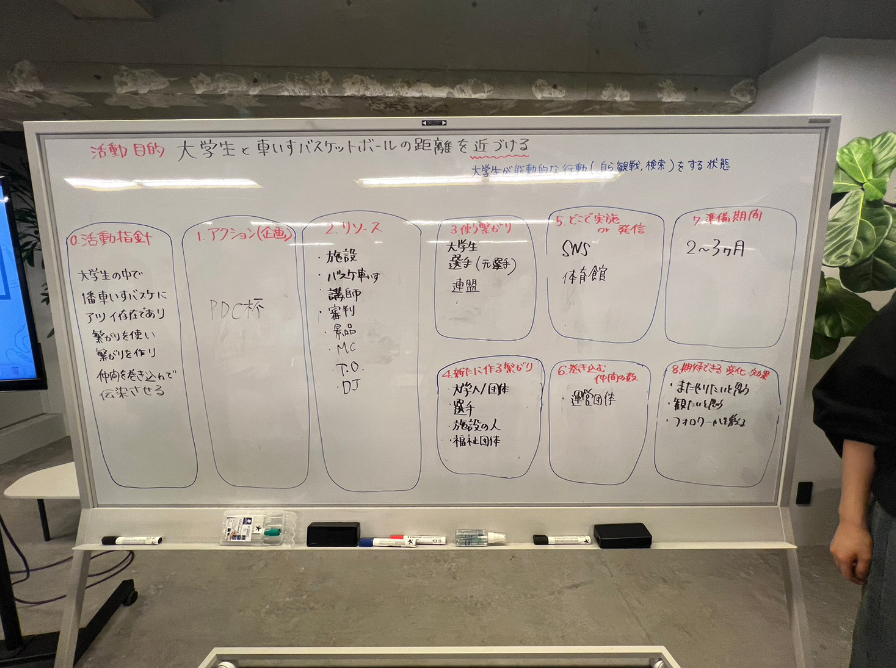 活動目的 大学生と車いすバスケットボールの距離を近づける
大学生が能動的な行動(自ら観戦,検索)をする状態
0.活動指針
大学生の中で
1番車いすバスケに
アツイ存在であり
繋がりを使い
繋がりを作り
仲間を巻き込んで
伝染させる
1.アクション(企画)
PDC杯
2.リソース
・施設
・バスケ車いす
・講師
・審判
・景品
・MC
・T.O.
・DJ
3.使う繋がり
大学生
選手(元選手)
連盟
4.新たに作る繋がり
・大学人/団体
・選手
・施設の人
・福祉団体
5.どこで実施
or 発信
SNS
体育館
6.巻き込む
仲間の数
・運営団体
7.準備期間
2〜3ヶ月
8.期待できる変化・効果
・またやりたいと思う
・観たいと思う
・フォロワーが増える